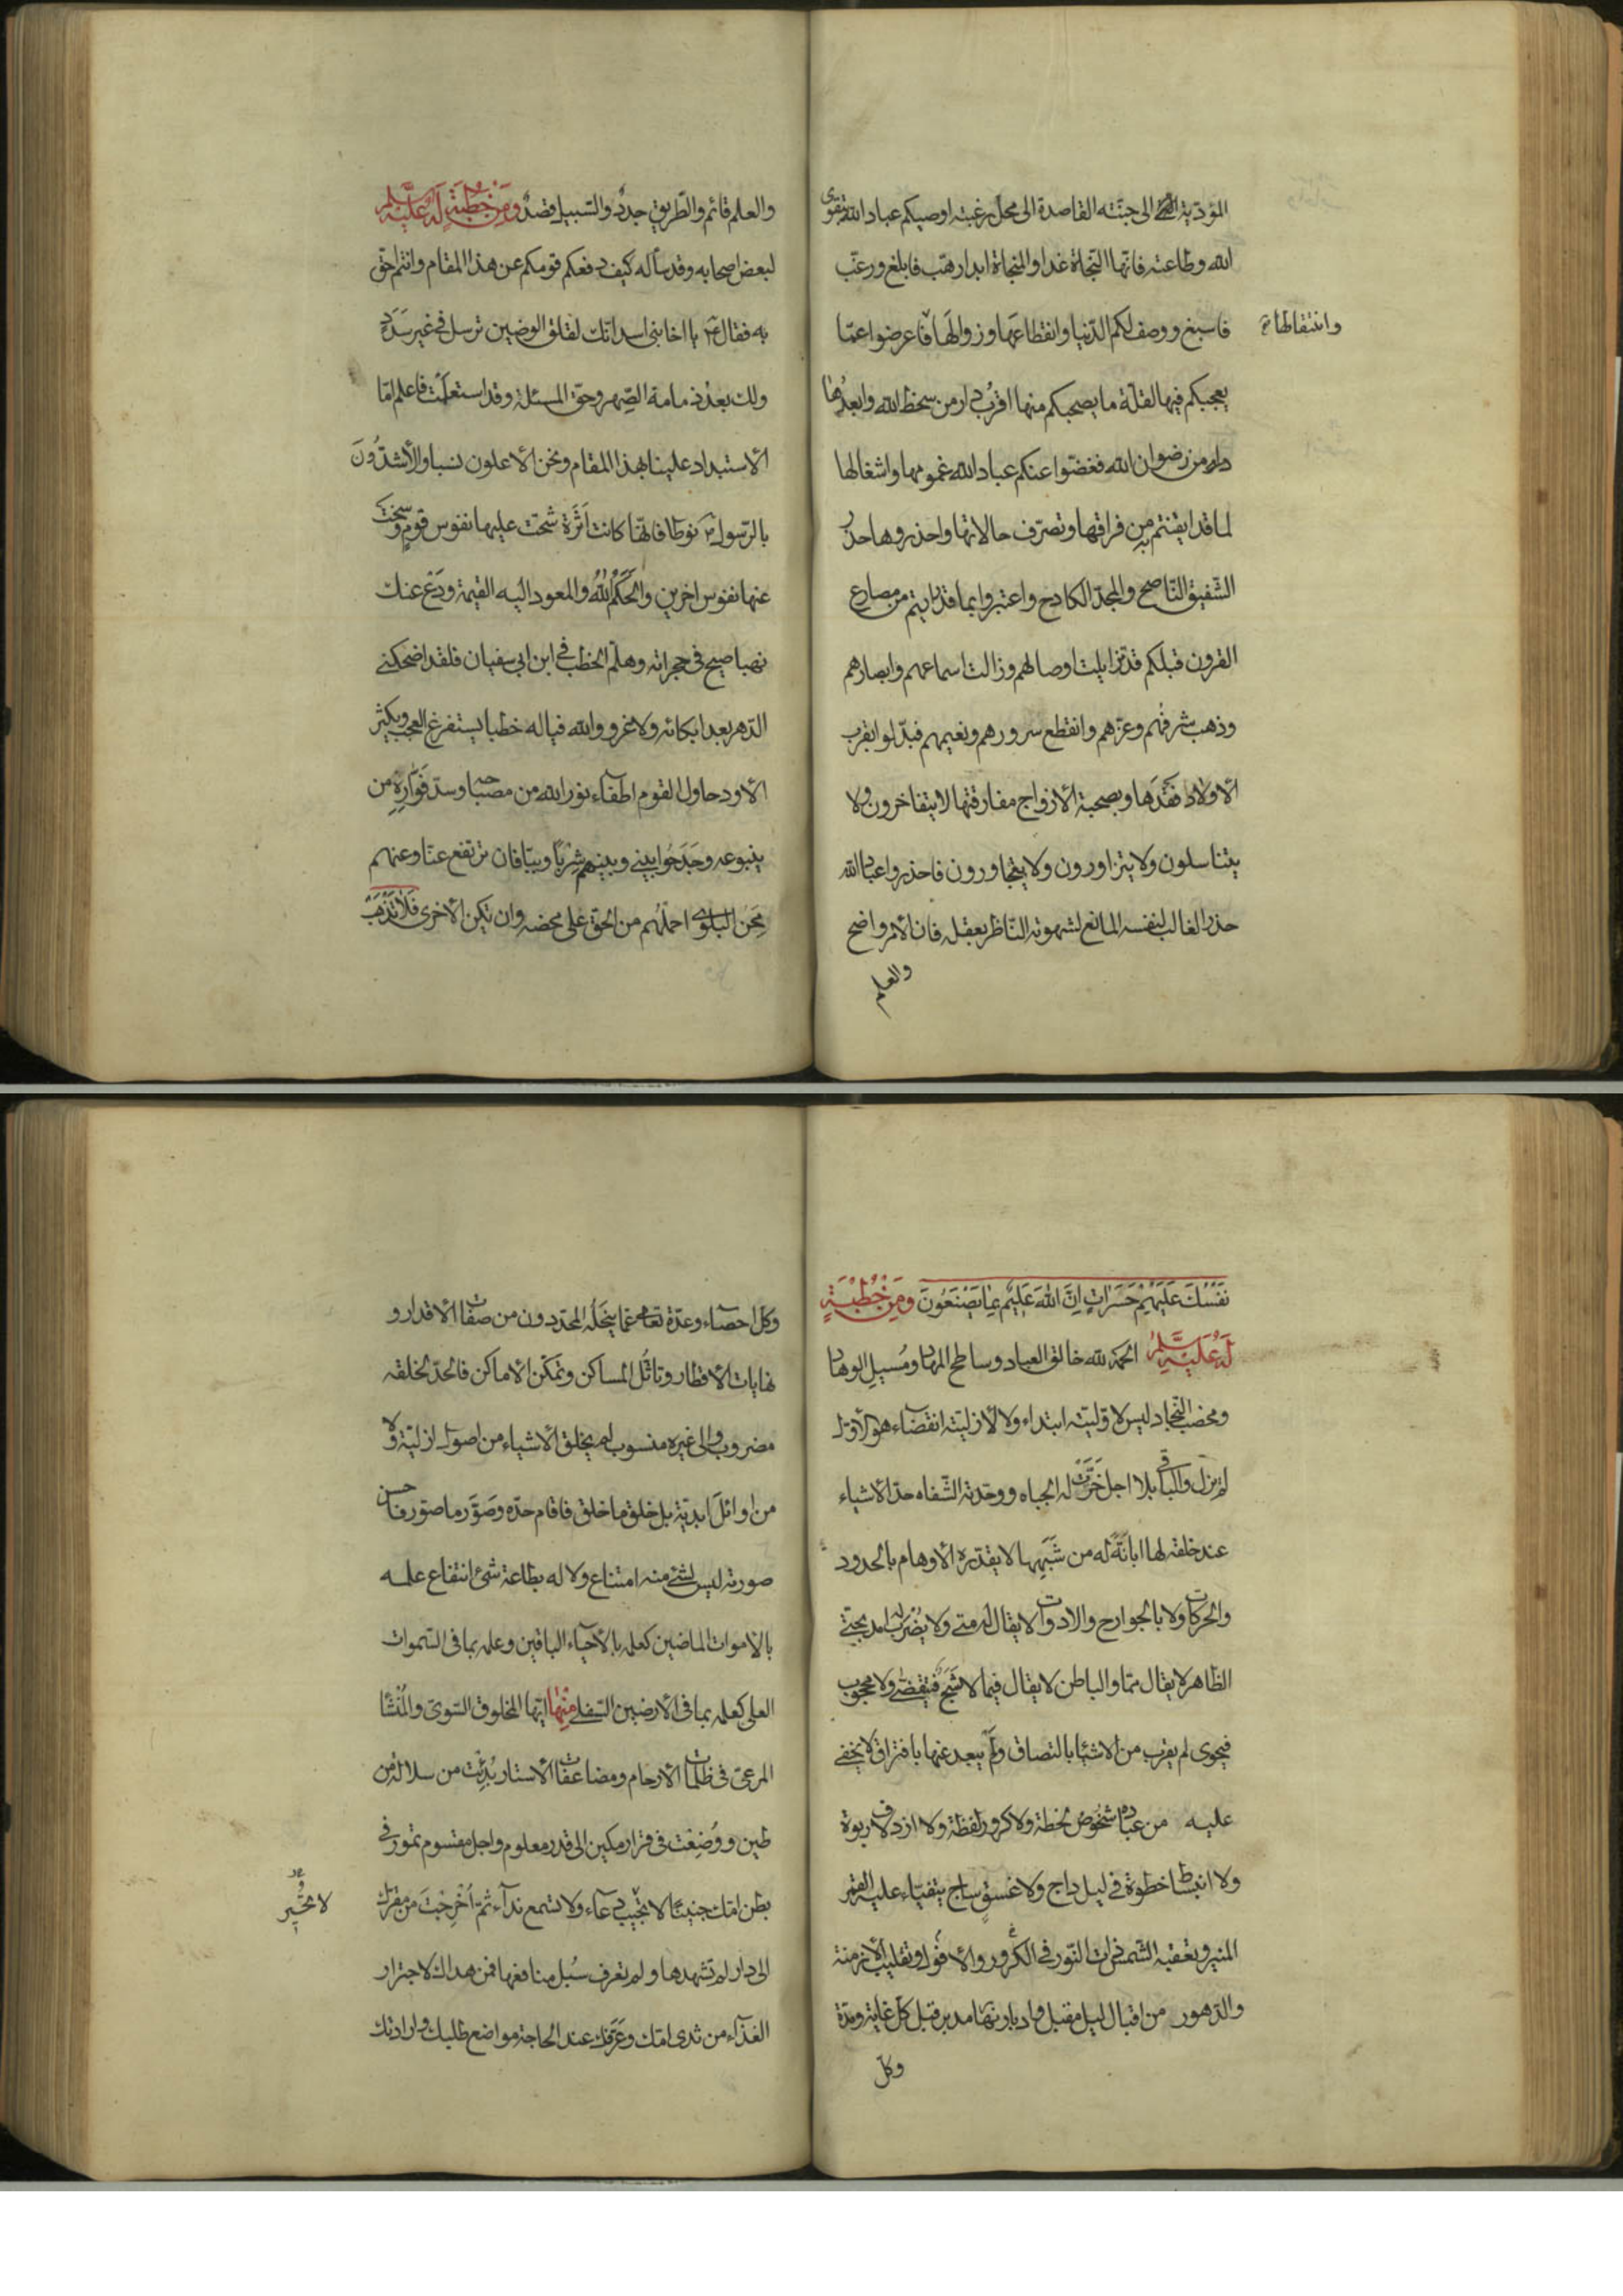 المؤدية الى جنته القاصدة الى محل رغبته اوصيكم عباد الله بتقوى
الله وطاعته فانها النجاة غدا والمنجاة ابدا رهّب فابلغ ورغّب
فاسبغ ووصف لكم الدّنيا وانقطاعها وزوالَها فاعرضوا عمّا
وانتقالها
يعجبكم فيها لقلّة ما يصحبكم منها اقربُ دار من سخط الله وابعدُها
دار من رضوان الله فغضّوا عنكم عباد الله غمومها واشغالها
لما قد ايقنتم به من فراقها وتصرّف حالاتها واحذروها حذر
الشّفيق النّاصح والمجدّ الكادح واعتبروا بما قد رايتم من مصارع
القرون قبلكم قد تزايلت اوصالهم وزالت اسماعهم وابصارهم
وذهب شرفهم وعزّهم وانقطع سرورهم ونعيمهم فبدّلوا بقرب
الأولاد فَقْدَها وبصحبة الأزواج مفارقتها لا يتفاخرون ولا
يتناسلون ولا يتزاورون ولا يتجاورون فاحذروا عباد الله
حذر الغالب لنفسه المانع لشهوته النّاظر بعقله فان الأمر واضح
والعلم
والعلم قائم والطّريق جددٌ والسّبيل قصدٌ ومن خُطبَةٍ لَه عليه السلم
لبعض اصحابه وقد سأله كيف دفعكم قومكم عن هذا المقام وانتم احق
به فقال ع يا اخا بنى اسد انك لقلق الوضين ترسل فى غير سَدَدٍ
ولك بعدُ ذمامة الصِّهر وحق المسئلة وقد استعلمت فاعلم امّا
الأستبداد علينا بهذا المقام ونحن الأعلون نسبا والأشدُّونَ
بالرّسول ص نوطا فانّها كانت اَثَرَة شحّت عليها نفوس قومٍ وسخت
عنها نفوس اخرين والحَكَمُ اللهُ والمعود اليه القيمة ودَعْ عنك
نهبا صيح فى حجراته وهلمّ الخطب فى ابن ابى سفيان فلقد اضحكنى
الدّهر بعد ابكائه ولا غرو والله فيا له خطبا يستفرغ العجب ويكثر
الأود حاول القوم اطفاء نور الله من مصباحه وسدّ فَوّاره من
ينبوعه وجَدَحُوا بينى وبينهم شِربًا وبيّا فان ترتفع عنّا وعنهم
مِحَن البلوى احملْهُم من الحقّ على محضه وان تكن الأخرى فَلا تَذْهَبْ
نَفْسُكَ عَلَيْهِمْ حَسَراتٍ اِنَّ اللهَ عَليْمٌ بِمَا يَصْنَعُوْنَ ومن خُطْبَةٍ
لَهُ عليه السلم الحمد لله خالق العباد وساطح المهاد ومُسيلِ الوهاد
ومخصب النّجاد ليس لاوّليته ابتداء ولا لأزليّته انقضاء هو الأوّل
لم يزل والباقى بلا اجل خَرَّتْ له الجباه ووحّدته الشّفاه حدّ الأشياء
عند خلقه لها ابانَةً له من شَبَهِها لا يقدّره الأوهام بالحدود
والحركات ولا بالجوارح والادوات لا يقال له متى ولا يُضْرَبُ له امد بحتّى
الظّاهر لا يقال ممّا والباطن لا يقال فيما لا شَبَحٌ فيتقضّى ولا محجوب
فيحوى لم يقرب من الاشياء بالتصاق ولم يبعد عنها بافتراق لا يخفى
عليه من عباده شُخوصُ لحظة ولا كرور لفظة ولا ازدلاف ربوة
ولا انبساط خطوة فى ليل داج ولا غسق ساج يتفيّاء عليه القمر
المنير وتعقبه الشّمس ذات النّور فى الكرور والأفول وتقليب الأزمنة
والدّهور من اقبال ليل مقبل وادبار نهار مدبر قبل كلّ غاية ومدّة
وكلّ
وكلّ احصاء وعدّة تعالى عمّا ينحَلُه المحدّدون من صفات الأقدار و
نهايات الأقطار وتاثّل المساكن وتمكّن الأماكن فالحدّ لخلقه
مضروب والى غيره منسوب لم يخلق الأشياء من اصول ازليّة ولا
من اوائل ابديّة بل خلق ما خلق فاقام حدّه وصَوَّر ما صوّر فاحسن
صورته ليس لشئ منه امتناع ولا له بطاعة شئ انتفاع علمه
بالأموات الماضين كعلمه بالأحياء الباقين وعلمه بما فى السّموات
العلى كعلمه بما فى الأرضين السّفلى مِنْها ايّها المخلوق السّوىّ والمُنْشَأ
المرعىّ فى ظلمات الأرحام ومضاعفات الأستار بُدِئْتَ من سلالة من
طين ووُضِعْتَ فى قرار مكين الى قدر معلوم واجل مقسوم تمور فى
بطن امّك جنينًا لا تجيب دعاء ولا تسمع نداء ثمّ اُخْرِجْتَ من مقرّك
لا تحير
الى دار لم تشهدها ولم تعرف سُبل منافعها فمن هداك لاجترار
الغذاء من ثدى امّك وعَرّفك عند الحاجة مواضع طلبك وارادتك